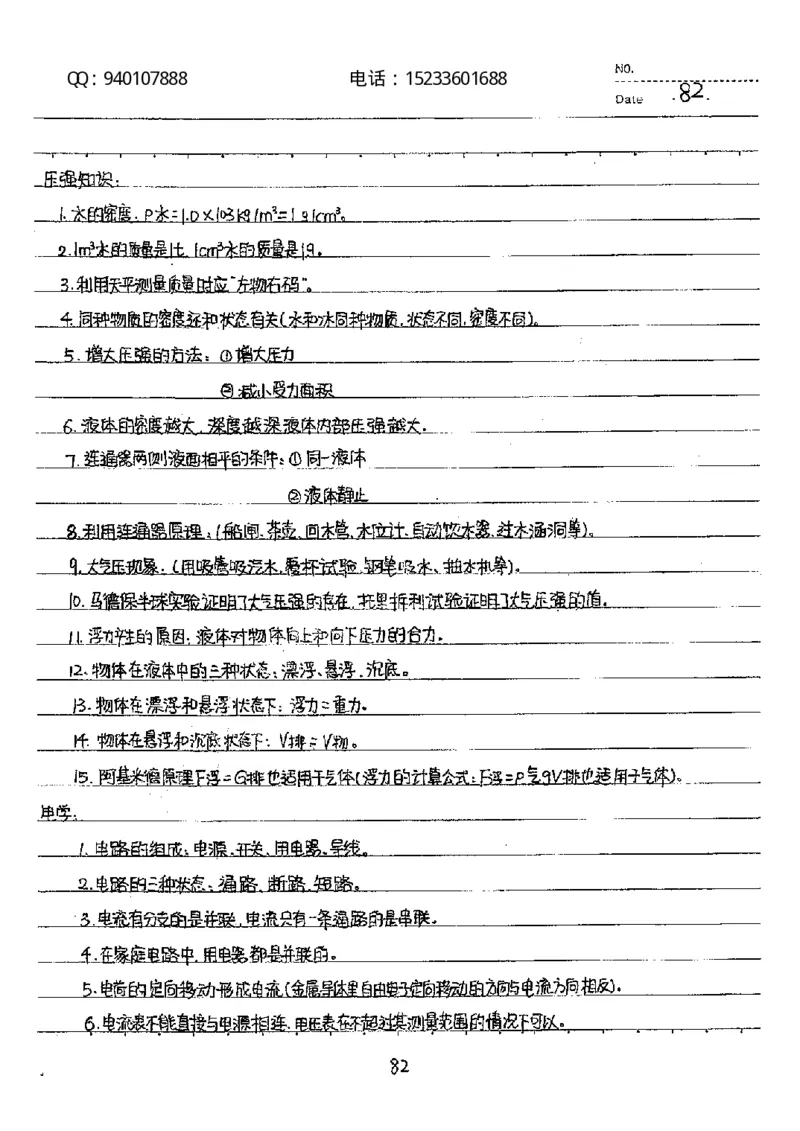 QQ：940107888 电话：15233601688 NO.
Date .82.
压强知识：
1.水的密度：ρ水=1.0×10³kg/m³=1g/cm³。
2.1m³水的质量是1t，1cm³水的质量是1g。
3.利用天平测量质量时应"左物右码"。
4.同种物质的密度还和状态有关(水和冰同种物质，状态不同，密度不同)。
5.增大压强的方法：①增大压力
②减小受力面积
6.液体的密度越大，深度越深液体内部压强越大。
7.连通器两侧液面相平的条件：①同一液体
②液体静止
8.利用连通器原理：(船闸、茶壶、回水管、水位计、自动饮水器、过水涵洞等)。
9.大气压现象：(用吸管吸汽水、覆杯试验、钢笔吸水、抽水机等)。
10.马德保半球实验证明了大气压强的存在，托里拆利试验证明了大气压强的值。
11.浮力产生的原因：液体对物体向上和向下压力的合力。
12.物体在液体中的三种状态：漂浮、悬浮、沉底。
13.物体在漂浮和悬浮状态下：浮力=重力。
14.物体在悬浮和沉底状态下：V排=V物。
15.阿基米德原理F浮=G排也适用于气体(浮力的计算公式：F浮=ρ气gV排也适用于气体)。
电学：
1.电路的组成：电源、开关、用电器、导线。
2.电路的三种状态：通路、断路、短路。
3.电流有分支的是并联，电流只有一条通路的是串联。
4.在家庭电路中，用电器都是并联的。
5.电荷的定向移动形成电流(金属导体里自由电子定向移动的方向与电流方向相反)。
6.电流表不能直接与电源相连，电压表在不超过其测量范围的情况下可以。
82